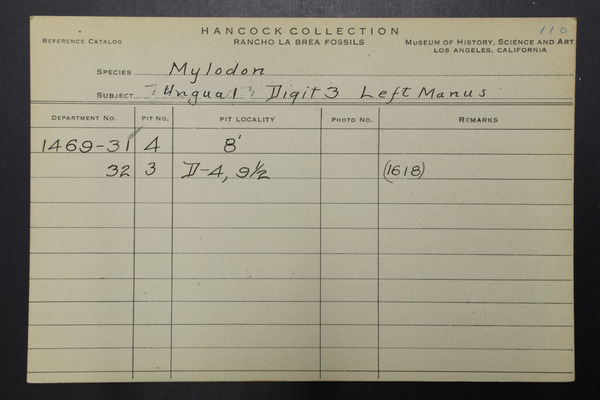 110
HANCOCK COLLECTION
REFERENCE CATALOG RANCHO LA BREA FOSSILS MUSEUM OF HISTORY, SCIENCE AND ART
LOS ANGELES, CALIFORNIA
SPECIES Mylodon
SUBJECT Ungual Digit 3 Left Manus
DEPARTMENT NO. PIT NO. PIT LOCALITY PHOTO NO. REMARKS
1469-31 4 8'
32 3 D-4, 9½ (1618)